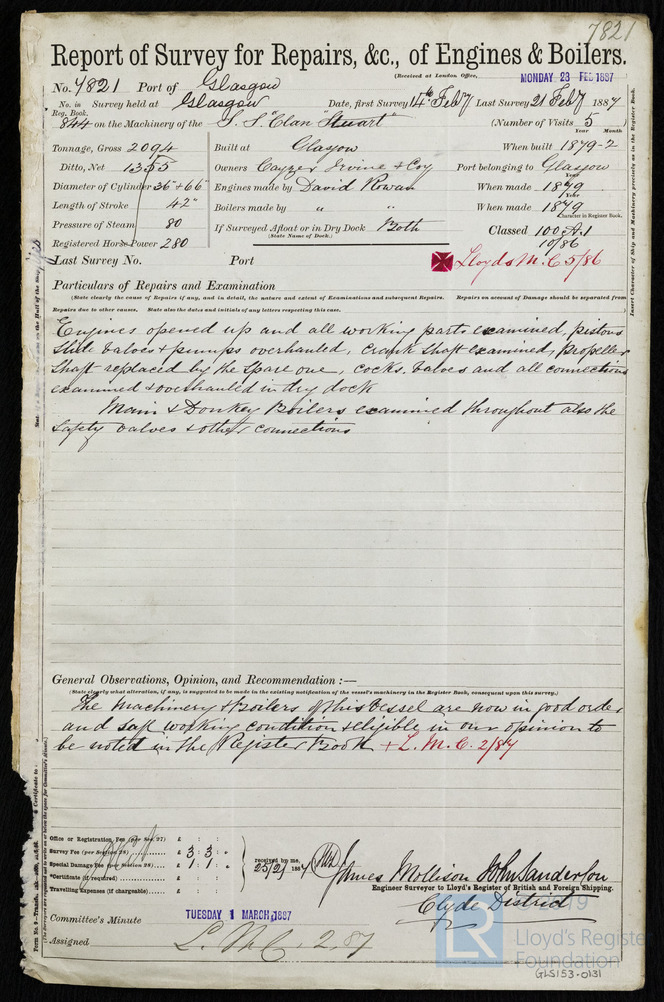 7821
Report of Survey for Repairs, &c., of Engines & Boilers.
(Received at London Office, MONDAY 28 FEB 1887
No. 7821 Port of Glasgow
No. in Reg. Book. Survey held at Glasgow Date, first Survey 14th Feby Last Survey 21 Feby 1887
844 on the Machinery of the S. S. "Clan Stuart" (Number of Visits 5 )
Tonnage, Gross 2094 Built at Glasgow When built Year 1879 Month 2
Ditto, Net 1355 Owners Cayzer Irvine & Coy Port belonging to Glasgow
Diameter of Cylinder 36" + 66" Engines made by David Rowan When made Year 1879
Length of Stroke 42" Boilers made by " " When made Year 1879
Pressure of Steam 80 If Surveyed Afloat or in Dry Dock Both Classed Character in Register Book. 100 A.1
Registered Horse Power 280 (State Name of Dock.) 10/86
Last Survey No. Port Lloyds M.C 5/86
Particulars of Repairs and Examination
(State clearly the cause of Repairs if any, and in detail, the nature and extent of Examinations and subsequent Repairs. Repairs on account of Damage should be separated from
Repairs due to other causes. State also the dates and initials of any letters respecting this case.
Engines opened up and all working parts examined, pistons
slide valves & pumps overhauled, crank shaft examined, propeller
shaft replaced by the spare one, cocks, valves and all connections
examined & overhauled in dry dock
Main & Donkey Boilers examined throughout also the
safety valves & other connections
General Observations, Opinion, and Recommendation :—
(State clearly what alteration, if any, is suggested to be made in the existing notification of the vessel's machinery in the Register Book, consequent upon this survey.)
The machinery & boilers of this vessel are now in good order
and safe working condition & eligible in our opinion to
be noted in the Register Book + L. M. C. 2/87
Office or Registration Fee (per Sec. 27) £ : :
Survey Fee (per Section 28) £ 3 : 3 : "
Special Damage Fee (per Section 28) £ 1 : 1 : "
*Certificate (if required) £ : :
Travelling Expenses (if chargeable) £ : :
received by me,
25/2/ 1887
James Mollison John Sanderson
Engineer Surveyor to Lloyd's Register of British and Foreign Shipping.
Clyde District
Committee's Minute TUESDAY 1 MARCH 1887
Assigned L. M. C. 2. 87
Insert Character of Ship and Machinery precisely as in the Register Book.
LR
Lloyd's Register
Foundation
GLS153-0131